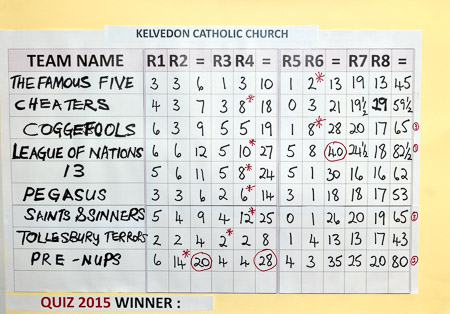 KELVEDON CATHOLIC CHURCH
TEAM NAME R1 R2 = R3 R4 = R5 R6 = R7 R8 =
THE FAMOUS FIVE 3 3 6 1 3 10 1 2* 13 19 13 45
CHEATERS 4 3 7 3 8* 18 0 3 21 19½ 19 59½
COGGEFOOLS 6 3 9 5 5 19 1 8* 28 20 17 65 3
LEAGUE OF NATIONS 6 6 12 5 10* 27 5 8 40 24½ 18 82½ 1
13 5 6 11 5 8* 24 5 1 30 16 16 62
PEGASUS 3 3 6 2 6* 14 3 1 18 18 17 53
SAINTS & SINNERS 5 4 9 4 12* 25 0 1 26 20 19 65 3
TOLLESBURY TERRORS 2 2 4 2* 2 8 1 4 13 13 17 43
PRE-NUPS 6 14* 20 4 4 28 4 3 35 25 20 80 2
QUIZ 2015 WINNER :